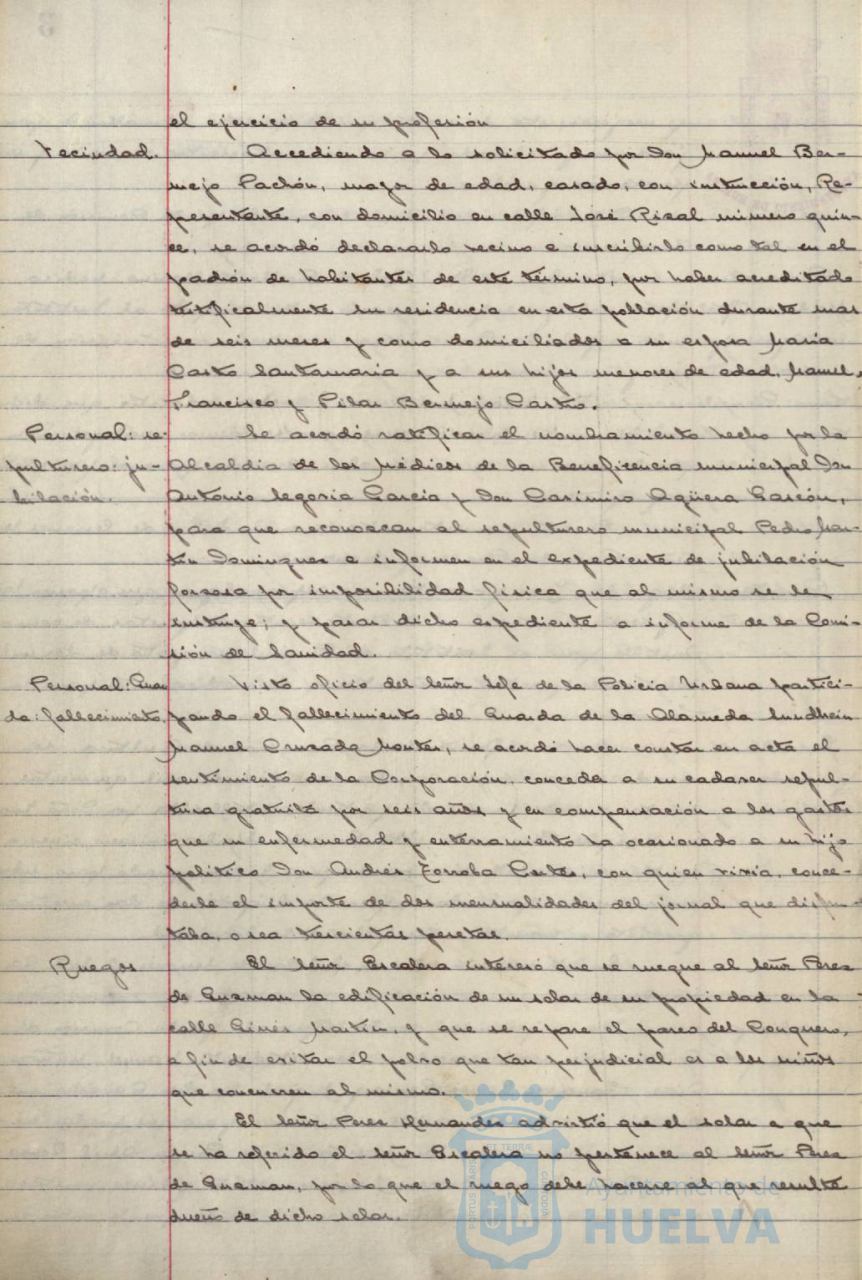 el ejercicio de su profesión
Vecindad.
Accediendo a lo solicitado por Don Manuel Ber-
mejo Pachón, mayor de edad, casado, con instrucción, Re-
presentante, con domicilio en calle José Rizal número quin-
ce, se acordó declararlo vecino e inscribirlo como tal en el
padrón de habitantes de este término, por haber acreditado
testificalmente su residencia en esta población durante mas
de seis meses y como domiciliados a su esposa María
Castro Santamaría y a sus hijos menores de edad, Manuel,
Francisco y Pilar Bermejo Castro.
Personal: se-
pulturero: ju-
bilación.
Se acordó ratificar el nombramiento hecho por la
Alcaldía de los Médicos de la Beneficencia municipal Don
Antonio Segovia García y Don Casimiro Agüera Garzón,
para que reconozcan al sepulturero municipal Pedro Mar-
tín Domínguez e informen en el expediente de jubilación
forzosa por imposibilidad física que al mismo se le
instruye; y pasar dicho expediente a informe de la Comi-
sión de Sanidad.
Personal: Guar
da: fallecimiento.
Visto oficio del Señor Jefe de la Policía Urbana partici-
pando el fallecimiento del Guarda de la Alameda Sundheim
Manuel Cruzado Montes, se acordó hacer constar en acta el
sentimiento de la Corporación, conceda a su cadaver sepul-
tura gratuita por seis años y en compensación a los gastos
que su enfermedad y enterramiento ha ocasionado a su hijo
político Don Andrés Torroba, con quien vivía, conce-
derle el importe de dos mensualidades del jornal que disfru-
taba, o sea trescientas pesetas.
Ruegos
El Señor Escalera interesó que se ruegue al Señor Perez
de Guzman la edificación de un solar de su propiedad en la
calle Ginés Martín, y que se repare el paseo del Conquero,
a fin de evitar el polvo que tan perjudicial es a los niños
que concurren al mismo.
El Señor Perez Hernandez advirtió que el solar a que
se ha referido el Señor Escalera no pertenece al Señor Perez
de Guzman, por lo que el ruego debe hacerse al que resulte
dueño de dicho solar.
Ayuntamiento de
HUELVA